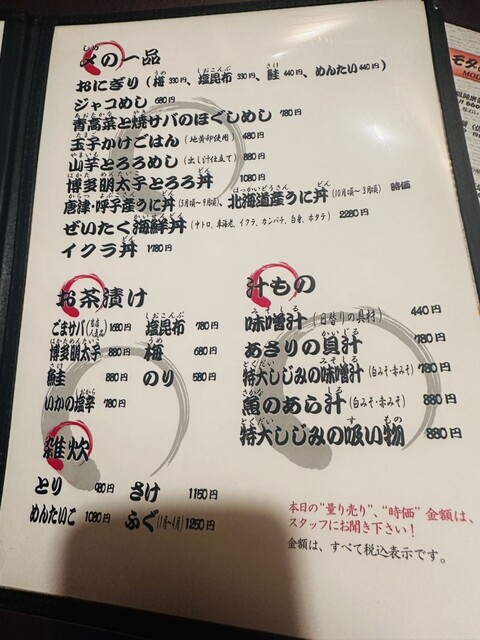 〆の一品
おにぎり（梅 330円、塩昆布 330円、鮭 440円、めんたい 440円）
ジャコめし 680円
青高菜と焼サバのほぐしめし 780円
玉子かけごはん（地黄卵使用） 480円
山芋とろろめし（出し汁仕立て） 880円
博多明太子とろろ丼 1080円
唐津・呼子産うに丼（5月頃〜9月頃）、北海道産うに丼（10月頃〜3月頃） 時価
ぜいたく海鮮丼（中トロ、車海老、イクラ、カンパチ、白身、ホタテ） 2280円
イクラ丼 1780円
お茶漬け
ごまサバ 1680円 塩昆布 780円
博多明太子 880円 梅 680円
鮭 880円 のり 580円
いかの塩辛 780円
雑炊
とり 980円 さけ 1150円
めんたいこ 1080円 ふぐ（1月〜4月） 1250円
汁もの
味噌汁（日替りの具材） 440円
あさりの貝汁 780円
特大しじみの味噌汁（白みそ・赤みそ） 780円
魚のあら汁（白みそ・赤みそ） 880円
特大しじみの吸い物 880円
本日の"量り売り"、"時価" 金額は、
スタッフにお聞き下さい！
金額は、すべて税込表示です。
モダ